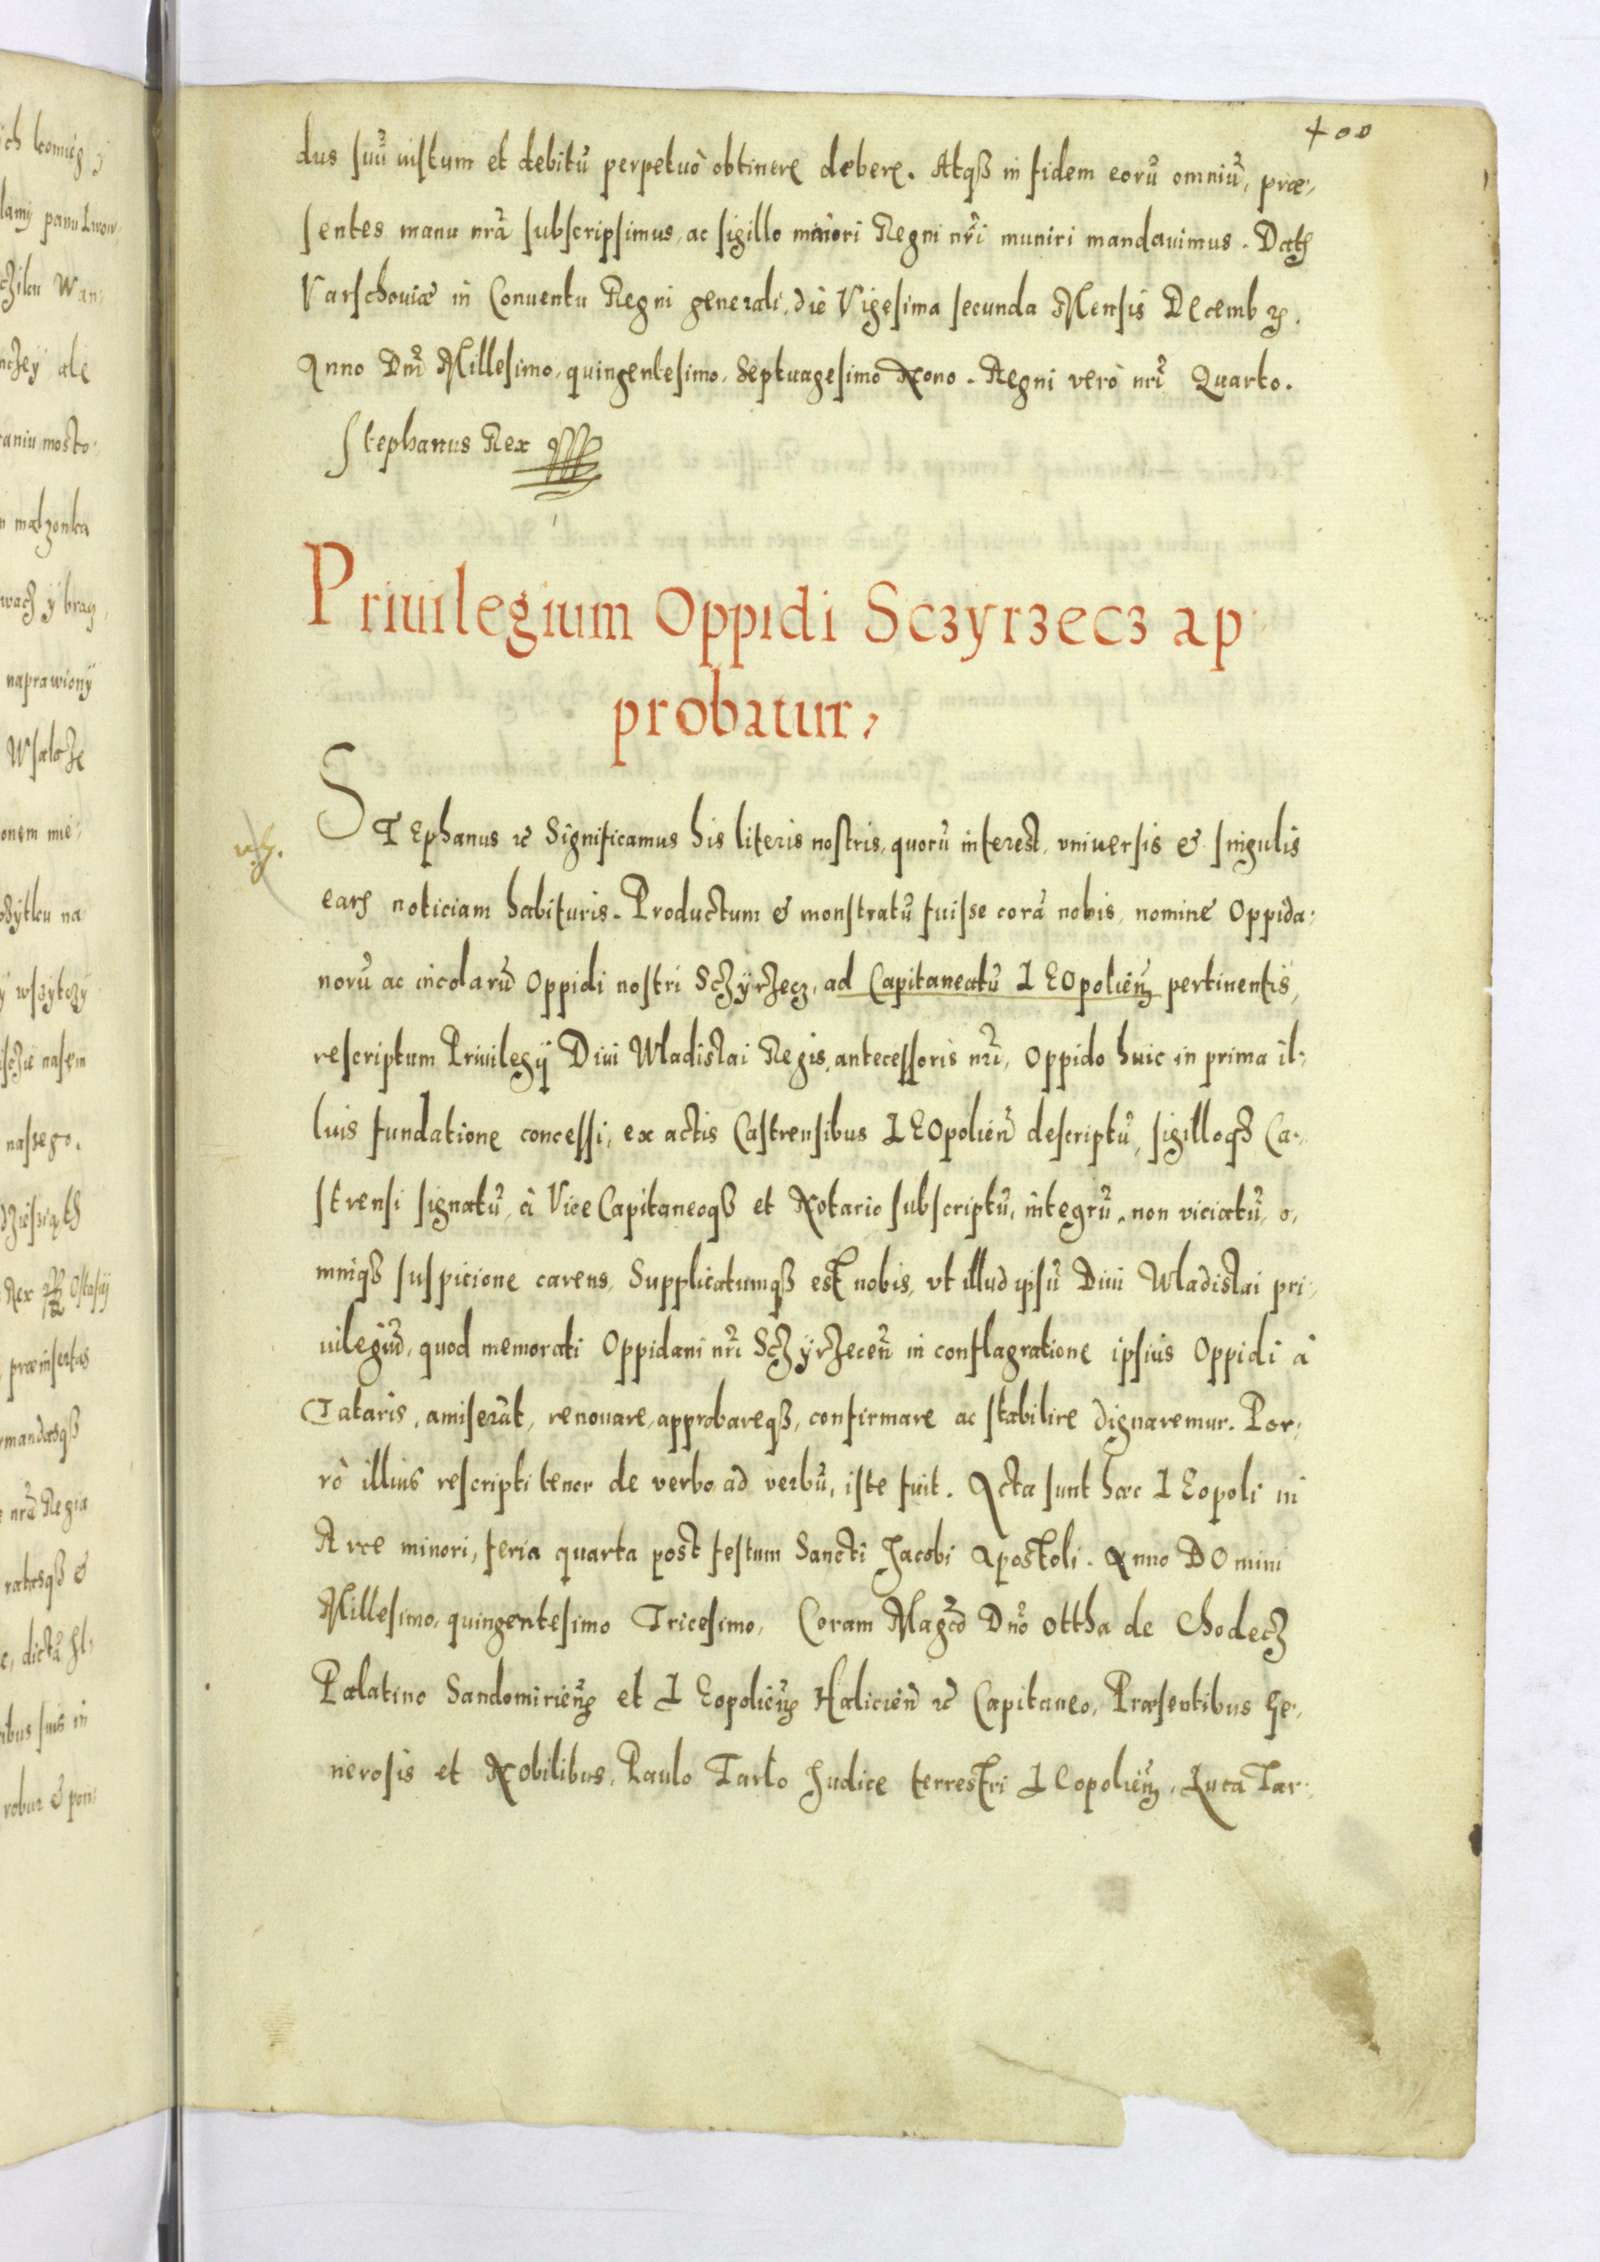 400
dus suũ iustum et debitũ perpetuò obtinere debere. Atqȝ in fidem eorũ omniũ, præ-
sentes manu nrã subscripsimus, ac sigillo minori Regni nr̃i muniri mandauimus. Datȝ
Varschouiæ in Conuentu Regni generali, die Vigesima secunda Mensis Decembꝝ.
Anno Dni̴ Millesimo, quingentesimo, Septuagesimo Nono. Regni verò nrĩ Quarto.
Stephanus Rex
Priuilegium Oppidi Sczyrzecz ap
probatur,
STEphanus ꝛc̃ Significamus his literis nostris, quorũ interest, vniuersis & singulis
earȝ noticiam habituris. Productum & monstratũ fuisse corã nobis, nomine Oppida-
norũ ac incolarũ Oppidi nostri Sczÿrzecz, ad Capitaneatũ LEOpolieñ pertinentis,
rescriptum Priuilegÿ Diui Wladislai Regis, antecessoris nrĩ, Oppido huic in prima il-
luis fundatione concessi, ex actis Castrensibus LEOpolieñ descriptũ, sigilloqȝ Ca-
strensi signatũ, à Vice Capitaneoqȝ et Notario subscriptũ, integrũ, non viciatũ, o-
mniqȝ suspicione carens, Supplicatumqȝ est nobis, vt illud ipsũ Diui Wladislai pri-
uilegiũ, quod memorati Oppidani nrĩ Sczÿrzeceñ in conflagratione ipsius Oppidi à
Tataris, amiserũt, renouare, approbareqȝ, confirmare ac stabilire dignaremur. Por-
rò illius rescripti tenor de verbo ad verbũ, iste fuit. Acta sunt hæc LEopoli in
Arce minori, feria quarta post festum Sancti Jacobi Apostoli. Anno DOmini
Millesimo, quingentesimo Tricesimo, Coram Magcõ Dnõ Ottha de Chodecz
Palatino Sandomirieñ et LEopolieñ Halicieñ ꝛc̃ Capitaneo, Præsentibus Ge-
nerosis et Nobilibus, Paulo Tarlo Judice terrestri LEopolieñ, Luca Tar-